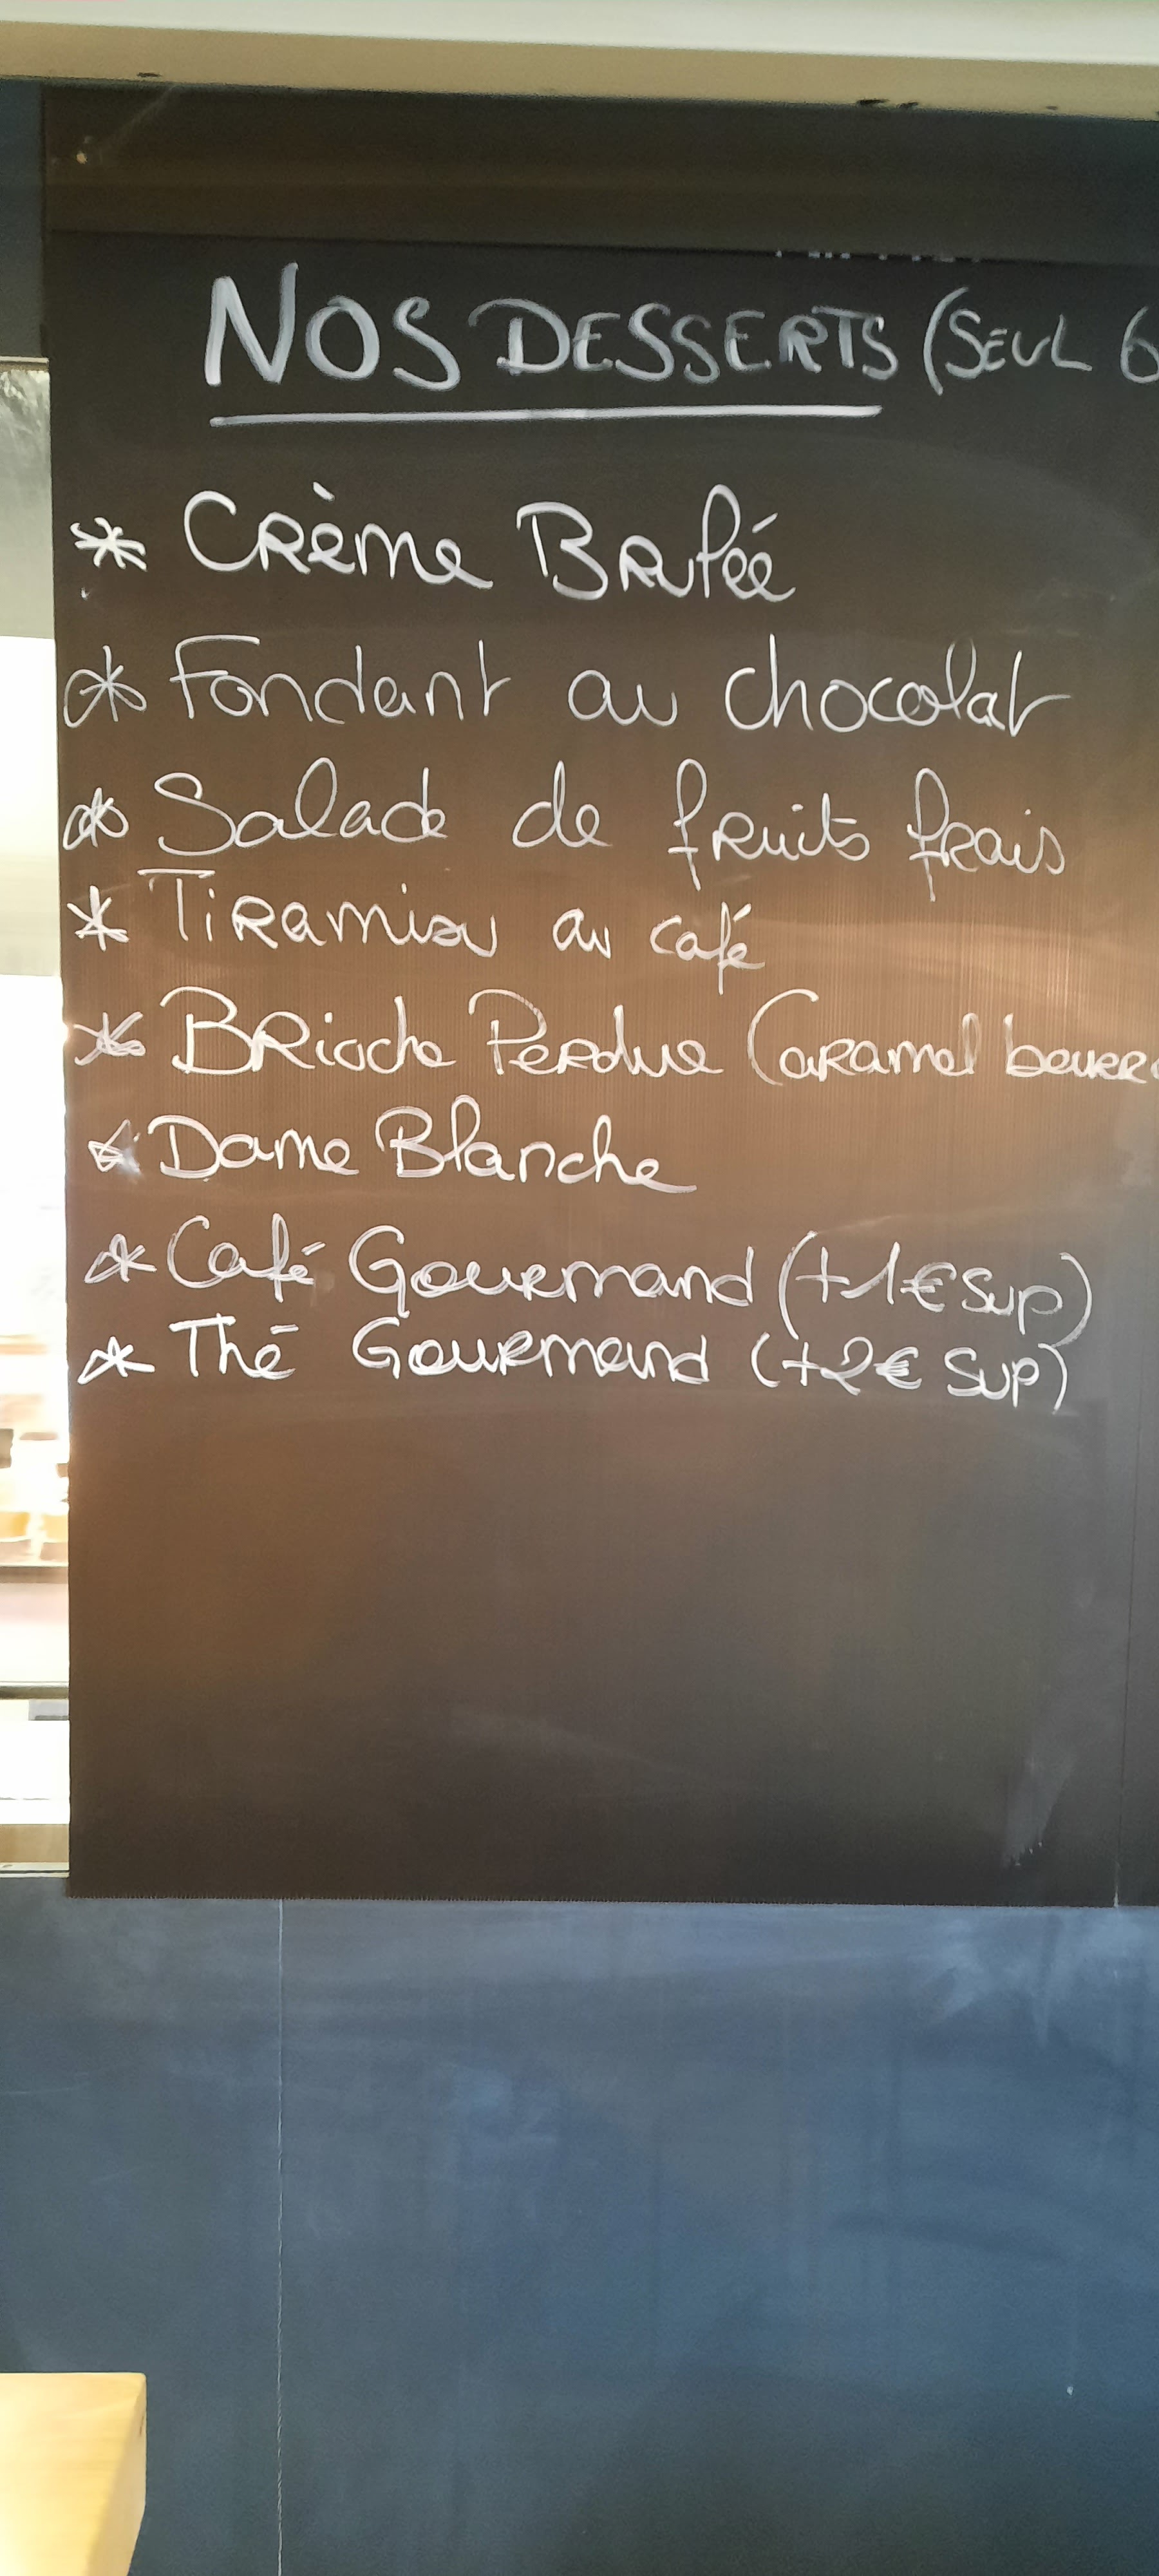 NOS DESSERTS (SEUL 6
* Crème Brulée
* Fondant au chocolat
* Salade de fruits frais
* Tiramisu au café
* Brioche Perdue Caramel beurre
* Dame Blanche
* Café Gourmand (+1€ sup)
* Thé Gourmand (+2€ sup)